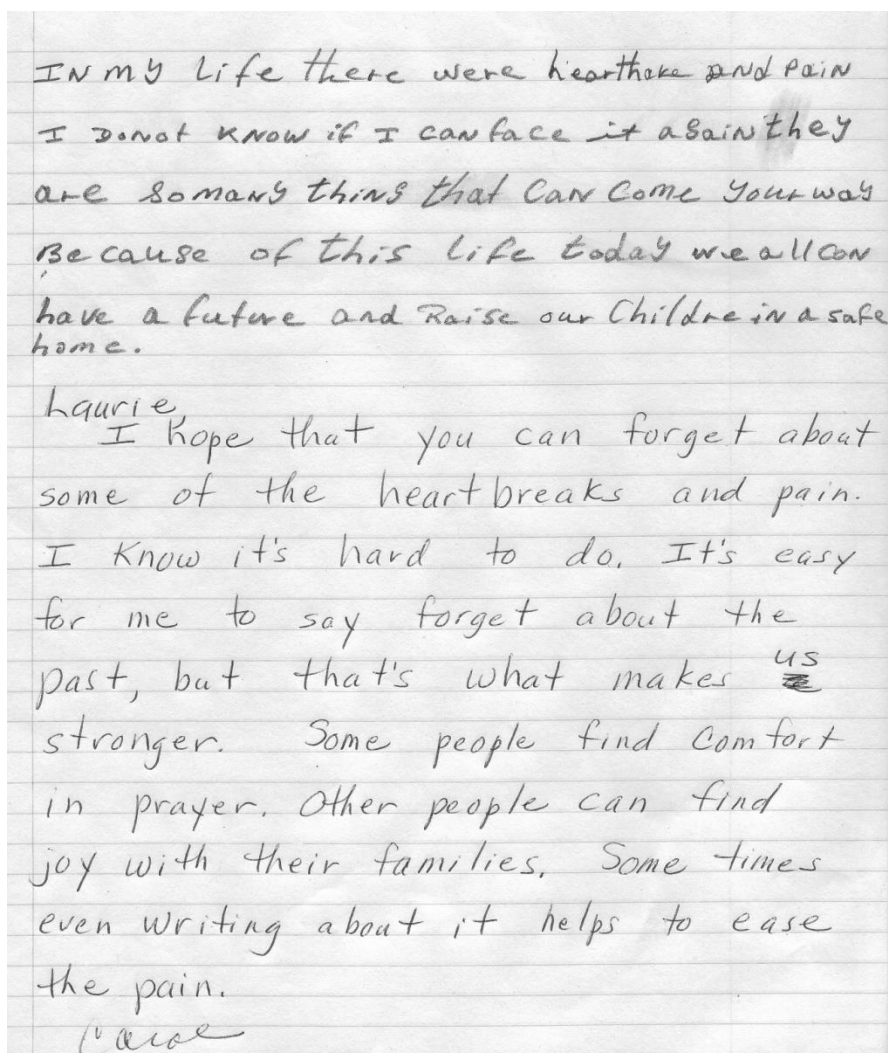 IN my Life there were hearthake and Pain
I Donot KNOW if I can face it asain they
are Somany thing that Can Come Your way
Because of this Life today we all can
have a future and Raise our Childre in a safe
home.
Laurie,
I hope that you can forget about
some of the heartbreaks and pain.
I Know it's hard to do. It's easy
for me to say forget about the
past, but that's what makes us
stronger. Some people find Comfort
in prayer. Other people can find
joy with their families. Some times
even writing about it helps to ease
the pain.
Carol